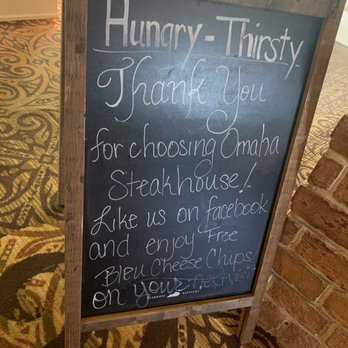 Hungry - Thirsty
Thank You
for choosing Omaha
Steakhouse!
Like us on facebook
and enjoy Free
Bleu Cheese Chips
on your Next Visit